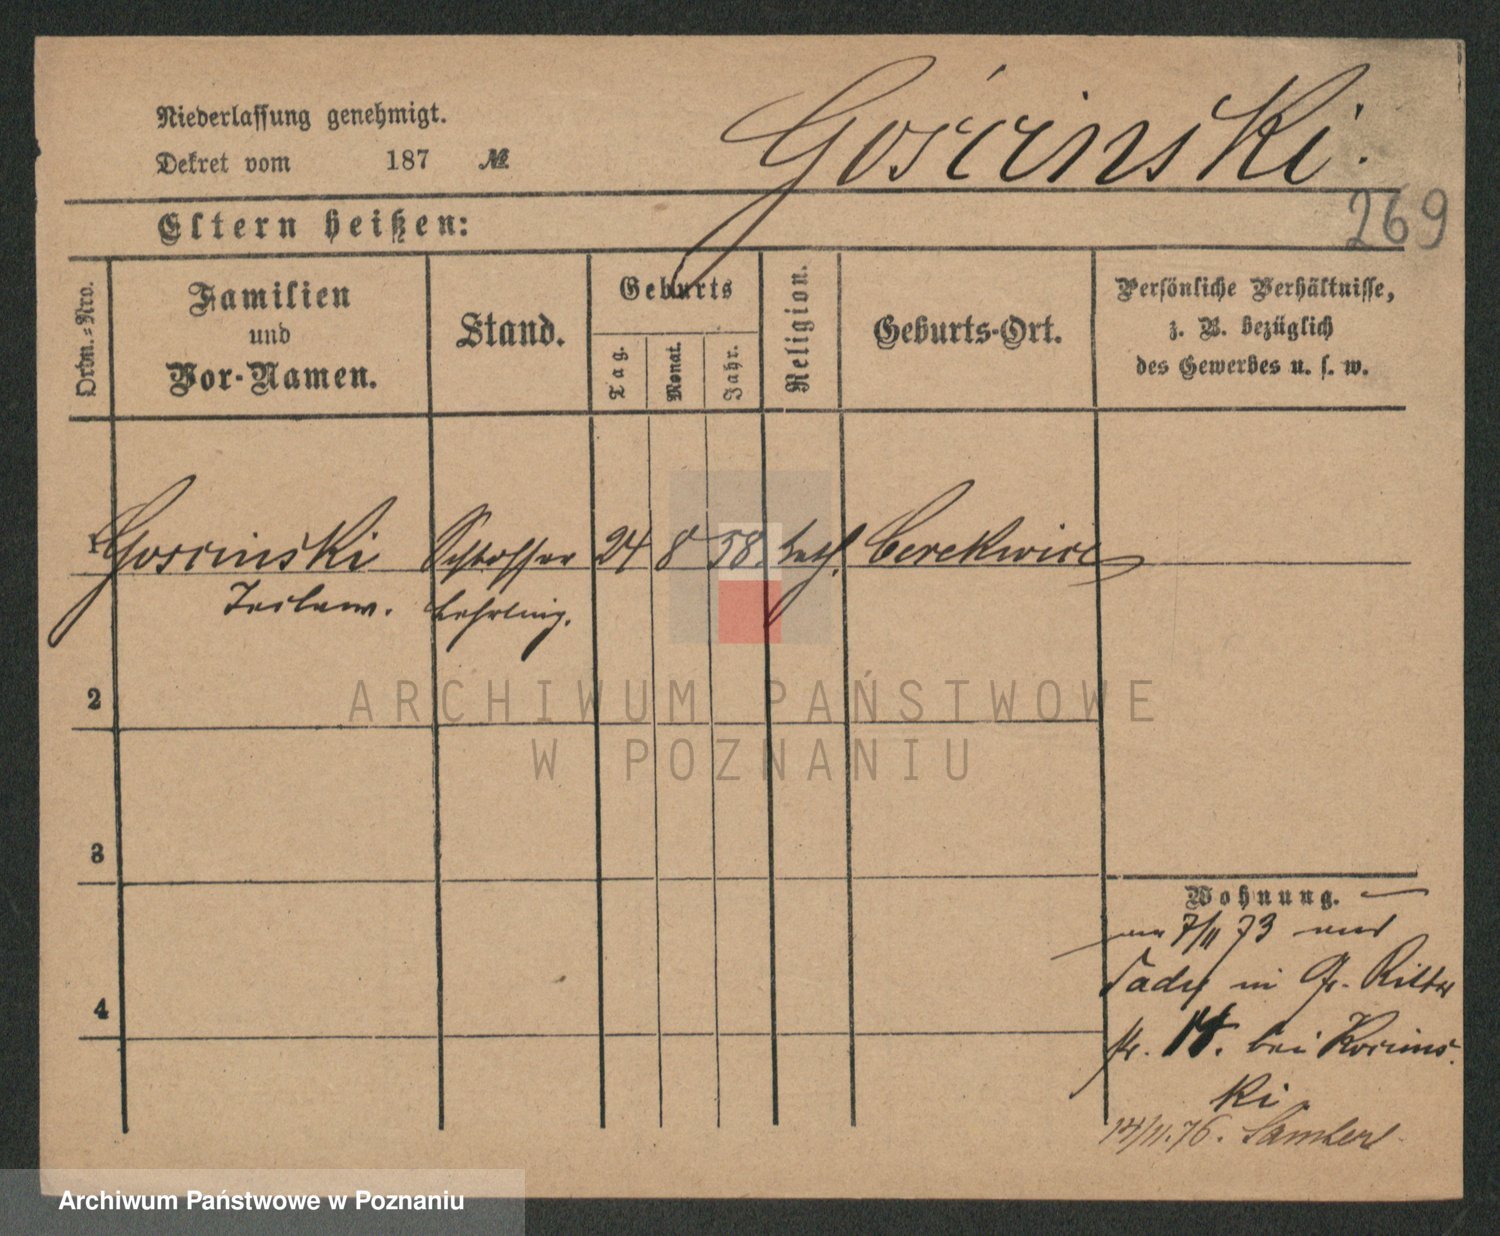 Niederlassung genehmigt.
Dekret vom 187 №
Gościnski.
269
Eltern heißen:
Ordn.=Nro.
Familien
und
Vor-Namen.
Stand.
Geburts
Tag.
Monat.
Jahr.
Religion.
Geburts-Ort.
Persönliche Verhältnisse,
z. B. bezüglich
des Gewerbes u. s. w.
1 Goscinski Schlosser 24 8 58. kath. Cerekwice
Lehrling.
2
ARCHIWUM PAŃSTWOWE
W POZNANIU
3
Wohnung.
7/11 73
in Gr. Ritter
str. 14. bei Kocins
ki
14/11.76.
4
Archiwum Państwowe w Poznaniu